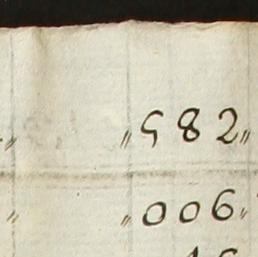 〃582〃
〃 〃006〃